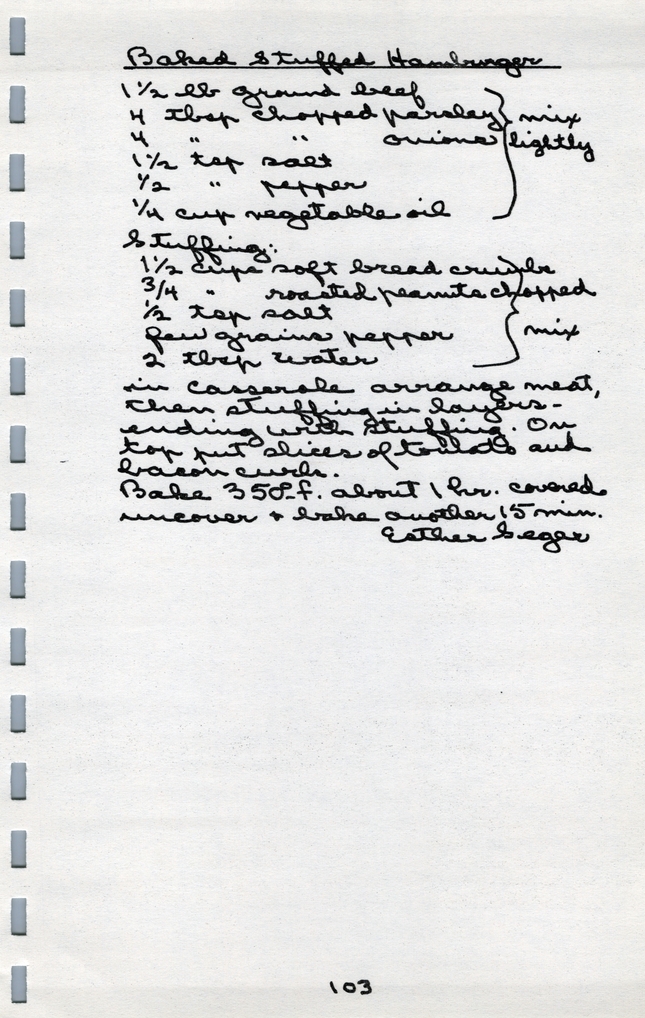 Baked Stuffed Hamburger
1 1/2 lb ground beef
4 tbsp chopped parsley } mix
4 " " onions } lightly
1 1/2 tsp salt
1/2 " pepper
1/4 cup vegetable oil
Stuffing:
1 1/2 cups soft bread crumbs
3/4 " roasted peanuts chopped
1/2 tsp salt
few grains pepper } mix
2 tbsp water
in casserole arrange meat,
then stuffing in layers-
ending with stuffing. On
top put slices of tomato and
bacon curls.
Bake 350° f. about 1 hr. covered
uncover + bake another 15 min.
Esther Seger
103